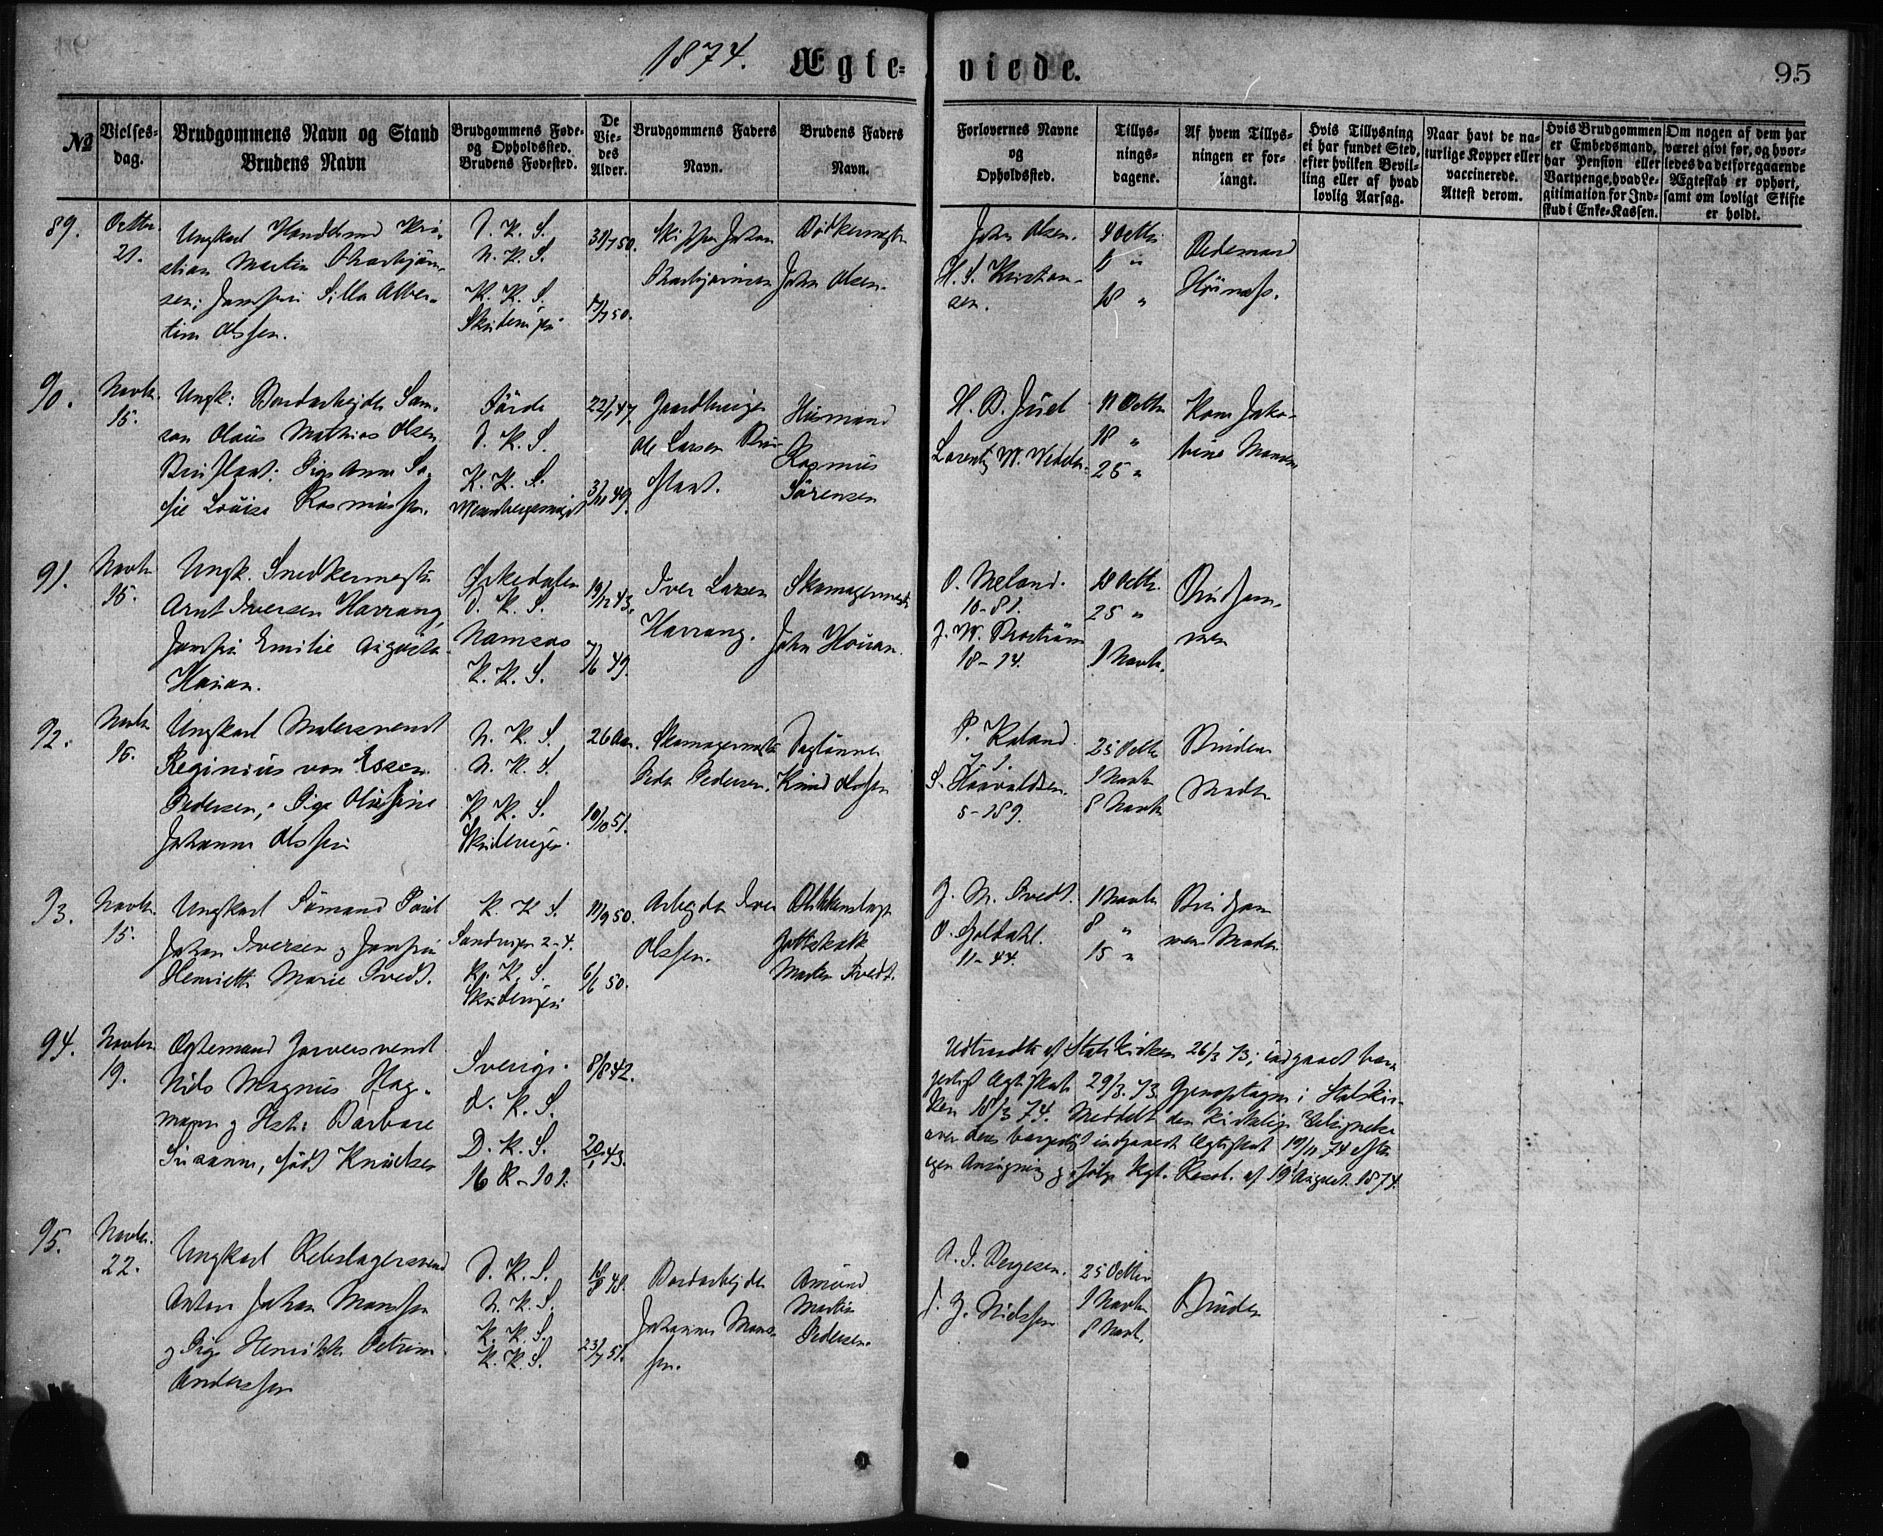 1874. Ægte-viede. 95
№
Vielses-dag.
Brudgommens Navn og Stand
Brudens Navn
Brudgommens Føde-
og Opholdssted.
Brudens Fødested.
De
Vie-
des
Alder.
Brudgommens Faders
Navn.
Brudens Faders
Navn.
Forlovernes Navne
og
Opholdssted.
Tillys-
nings-
dagene.
Af hvem Tillys-
ningen er for-
langt.
Hvis Tillysning
ei har fundet Sted,
efter hvilken Bevil-
ling eller af hvad
lovlig Aarsag.
Naar havt de na-
turlige Kopper eller
vaccinerede.
Attest derom.
Hvis Brudgommen
er Embedsmand,
har Pension eller
Vartpenge, hvad Le-
gitimation for Ind-
skud i Enke-Kassen.
Om nogen af dem har
været givt før, og hvor-
ledes da det foregaaende
Ægteskab er ophørt,
samt om lovligt Skifte
er holdt.
89.
Octbr.
21.
Ungkarl Handelsmd Kri-
stian Martin
sen; Jomfru Silla Alber-
tine Olssen.
D. K. S.
N. K. S.
K. K. S.
Skudevigen
31/7 50.
17/7 50.
Skipper Johan
Bødkermester
John Olsen.
John Olsen.
H. S. Kristian-
sen.
4 Octbr.
11 "
18 "
90.
Novbr.
15.
Ungk: Bordarbejder Sam-
son Olaus Mathias Olsen
Pige Anne So-
fie Louise Rasmussen.
Førde
D. K. S.
K. K. S.
22/1 47
49.
Gaardbruger
Ole Larsen
Husmand
Rasmus
Sørensen
H. D. Juel
Lorentz W.
11 Octbr
18 "
25 "
Kone Jako-
bine Monsen
91.
Novbr
15.
Ungk. Snedkermester
Arnt Iversen Harrang,
Jomfru Emilie Augusta
Houan.
Ørkedalen
D. K. S.
Namsos
K. K. S.
19/12 43.
7/6 49.
Iver Larsen
Harrang.
Skomagermester
John Houan.
O. Meland.
10-81.
J. W.
18-14.
18 Octbr.
25 "
1 Novbr.
Brudgom-
men
92.
Novbr
15.
Ungkarl Malersvend
Reginius von Essen
Pedersen; Pige Olufine
Johanne Olssen
N. K. S.
N. K. S.
K. K. S.
Skudevigen.
26 Aar.
10/10 51.
Skomagermester
Peder Pedersen.
Daglønner
Knud Olssen
P. Kaland
S. Haavaldsen.
5-189.
25 Octbr
1 Novbr
8 Novbr
Brudens
Moder
93.
Novbr.
15.
Ungkarl Sømand Poul
Johan Iversen og Jomfru
Henriette Marie Tvedt.
K. K. S.
Sandvigen 2-4.
K. K. S.
Skudevigen
11/9 50.
6/6 50.
Arbejder Iver
Olssen.
Blikkenslager
Gottskalk
Martin Tvedt.
J. M. Tvedt.
O. Goldahl.
11-44.
1 Novbr
8 "
15 "
Brudgom
mens Moder
94.
Novbr.
19.
Ægtemand Garversvend
Nils Magnus Hag-
mann og Hstr: Barbare
Susanne, født Knudsen
Sverige.
D. K. S.
D. K. S.
16 R-101.
8/8 42.
20/1 43.
Udtraadte af Statskirken 26/3 73; indgaaet bor-
gerligt Ægteskab 29/3. 73. Gjenoptagne i Statskir-
ken 18/3 74. Meddelt den kirkelige Velsignelse
over deres borgerligt indgaaede Ægteskab 19/11 74 efter
egen Ansøgning og ifølge Kgl. Resol. af 19 August 1874.
95.
Novbr.
22.
Ungkarl Rebslagersvend
Anton Johan Monssen
og Pige Henrikke Petrine
Anderssen
D. K. S.
N. K. S.
K. K. S.
K. K. S.
48.
23/7 51.
Bordarbejder
Johannes Mons-
sen.
Amund
Martin
Pedersen.
A. J. Børgesen.
J. J. Nielssen
25 Octbr
1 Novbr
8 Novb.
Bruden